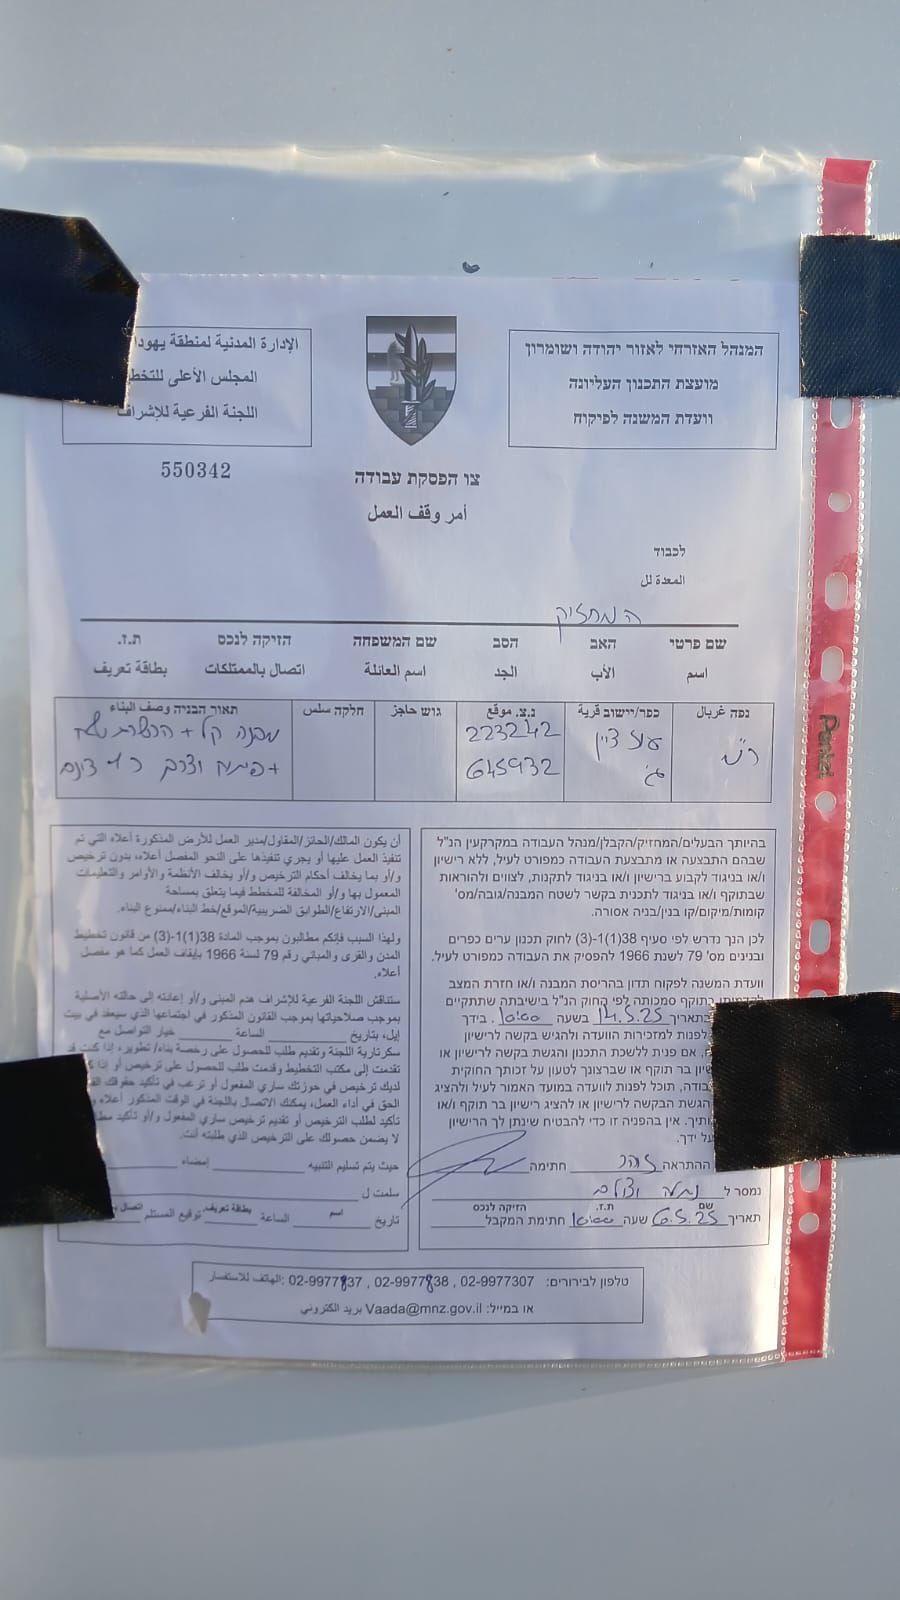 המנהל האזרחי לאזור יהודה ושומרון
מועצת התכנון העליונה
וועדת המשנה לפיקוח
الإدارة المدنية لمنطقة يهودا
المجلس الأعلى للتخط
اللجنة الفرعية للإشراف
550342
צו הפסקת עבודה
أمر وقف العمل
לכבוד
המחזיק
שם פרטי האב הסב שם המשפחה הזיקה לנכס ת.ז.
اسم الأب الجد اسم العائلة اتصال بالممتلكات بطاقة تعريف
נפה غربال כפר/יישוב قرية נ.צ. موقع גוש حاجز חלקה سلس תאור הבניה وصف البناء
223242 מבנה קל + הכשרת שטח
645932
בהיותך הבעלים/המחזיק/הקבלן/מנהל העבודה במקרקעין הנ"ל
שבהם התבצעה או מתבצעת העבודה כמפורט לעיל, ללא רישיון
ו/או בניגוד לקבוע ברישיון ו/או בניגוד לתקנות, לצווים ולהוראות
שבתוקף ו/או בניגוד לתכנית בקשר לשטח המבנה/גובה/מס'
קומות/מיקום/קו בנין/בניה אסורה.
לכן הנך נדרש לפי סעיף 38(1)(1-3) לחוק תכנון ערים כפרים
ובנינים מס' 79 לשנת 1966 להפסיק את העבודה כמפורט לעיל.
וועדת המשנה לפקוח תדון בהריסת המבנה ו/או חזרת המצב
בתוקף סמכותה לפי החוק הנ"ל בישיבתה שתתקיים
בתאריך 14.5.25 בשעה 10:00. בידך
לפנות למזכירות הוועדה ולהגיש בקשה לרישיון
אם פנית ללשכת התכנון והגשת בקשה לרישיון או
בר תוקף או שברצונך לטעון על זכותך החוקית
תוכל לפנות לוועדה במועד האמור לעיל ולהציג
הגשת הבקשה לרישיון או להציג רישיון בר תוקף ו/או
אין בהפניה זו כדי להבטיח שינתן לך הרישיון
על ידך.
ההתראה זוהר חתימה
נמסר ל
שם ת.ז. הזיקה לנכס
תאריך 6.5.25 שעה 10:00 חתימת המקבל
أن يكون المالك/الحائز/المقاول/مدير العمل للأرض المذكورة أعلاه التي تم
تنفيذ العمل عليها أو يجري تنفيذها على النحو المفصل أعلاه، بدون ترخيص
و/أو بما يخالف أحكام الترخيص و/أو يخالف الأنظمة والأوامر والتعليمات
المعمول بها و/أو المخالفة للمخطط فيما يتعلق بمساحة
المبنى/الارتفاع/الطوابق الضريبية/الموقع/خط البناء/ممنوع البناء.
ولهذا السبب فإنكم مطالبون بموجب المادة 38(1)(1-3) من قانون تخطيط
المدن والقرى والمباني رقم 79 لسنة 1966 بإيقاف العمل كما هو مفصل
أعلاه.
ستناقش اللجنة الفرعية للإشراف هدم المبنى و/أو إعادته إلى حالته الأصلية
بموجب صلاحياتها بموجب القانون المذكور في اجتماعها الذي سيعقد في بيت
إيل، بتاريخ الساعة خيار التواصل مع
سكرتارية اللجنة وتقديم طلب للحصول على رخصة بناء/ تطوير، إذا كنت قد
تقدمت إلى مكتب التخطيط وقدمت طلب للحصول على ترخيص أو إذا
لديك ترخيص في حوزتك ساري المفعول أو ترغب في تأكيد حقوقك
الحق في أداء العمل، يمكنك الاتصال باللجنة في الوقت المذكور أعلاه
تأكيد لطلب الترخيص أو تقديم ترخيص ساري المفعول و/أو تأكيد
لا يضمن حصولك على الترخيص الذي طلبته أنت.
حيث يتم تسليم التنبيه إمضاء
سلمت ل
اسم بطاقة تعريف
تاريخ الساعة توقيع المستلم
טלפון לבירורים: 02-9977307 , 02-9977838 , 02-9977837 :الهاتف للاستفسار
או במייל: Vaada@mnz.gov.il بريد الكتروني